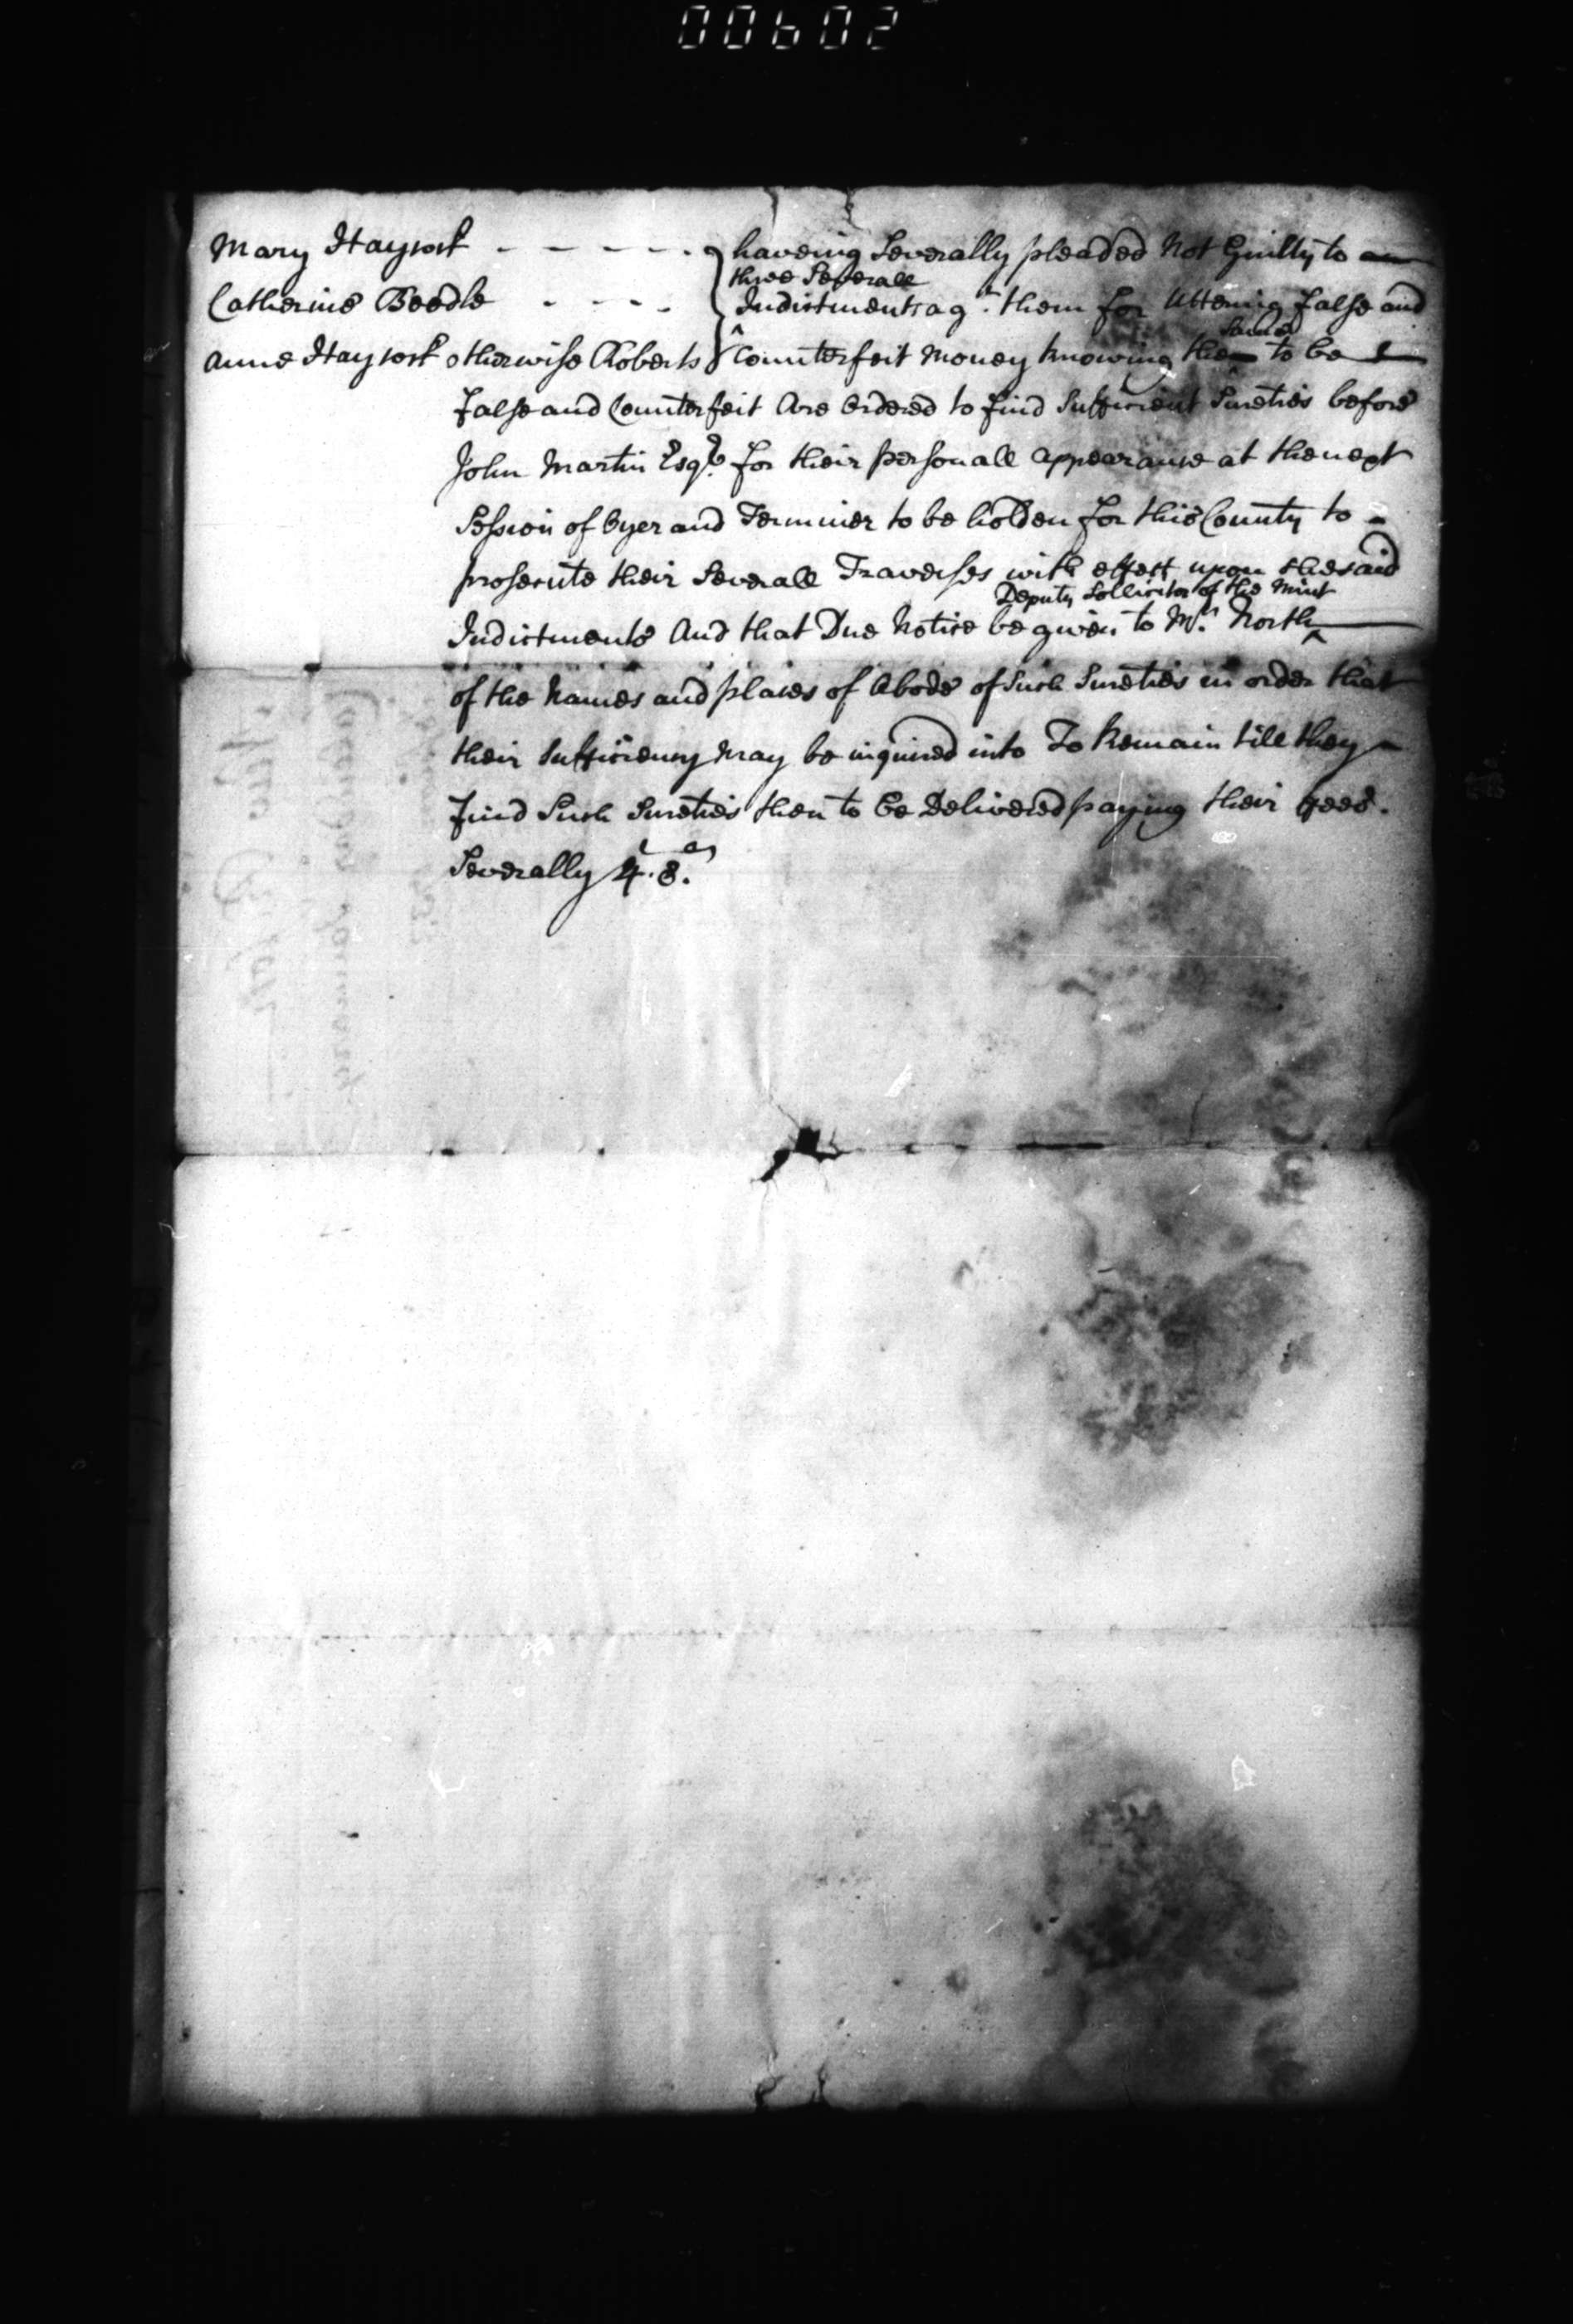 00602
Mary Haycock - - - - - } haveing Severally pleaded Not Guilty to an
three Severall
Catherine Beedle - - - - Indictments agt. them for Uttering false and
Same
Anne Haycock otherwise Roberts Counterfeit Money knowing the to be
false and Counterfeit Are Ordered to find Sufficient Sureties before
John Martin Esqr. for their personall appearance at the next
Session of Oyer and Terminer to be holden for this County to -
prosecute their Severall Traverses with effect upon the said
Deputy Sollicitor of the Mint
Indictments And that Due Notice be given to Mr. North ^
of the Names and places of Abode of Such Sureties in order that
their Sufficiency May be inquired into To Remain till they
find Such Sureties then to be Delivered paying their ffees.
Severally 4.8.